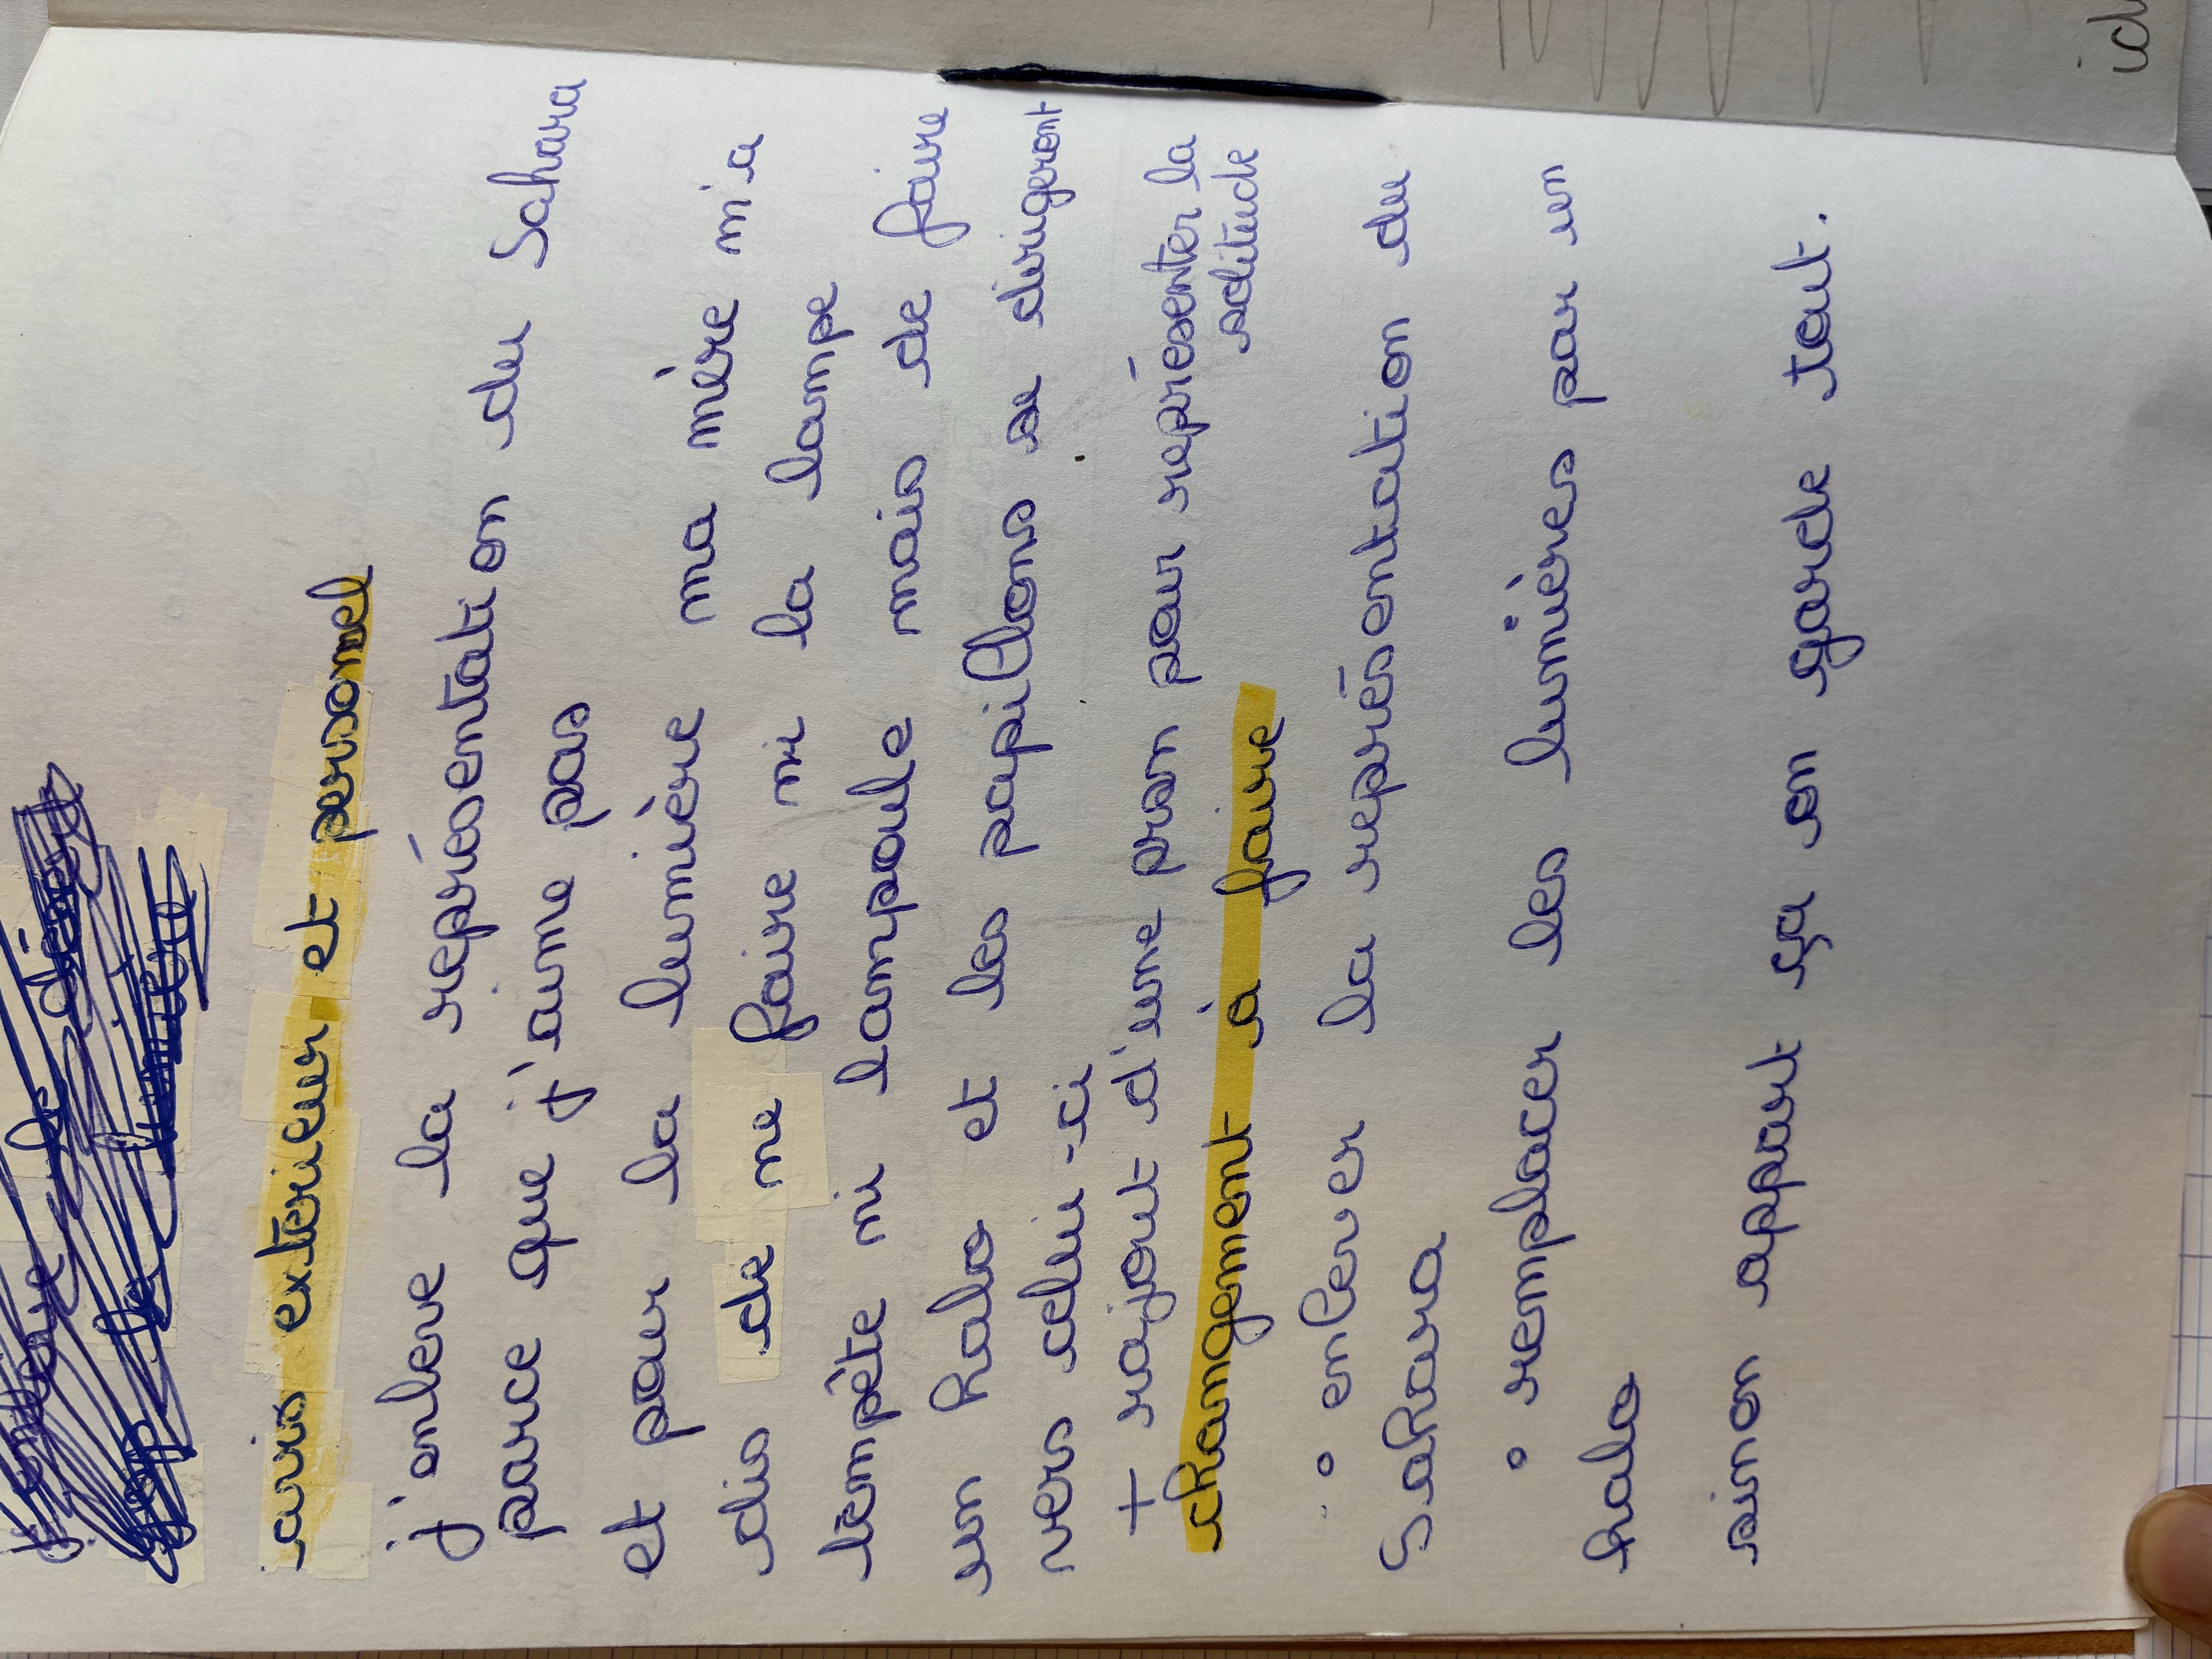 avis extérieur et personnel
j'enleve la représentation du Sahara
parce que j'aime pas
et pour la lumière ma mère m'a
dis de ne faire ni la lampe
tempête ni lampoule mais de faire
un halo et les papillons se dirigeront
vers celui-ci
+ rajout d'une pran pour représenter la
solitude
changement à faire
: ° enlever la représentation du
Sahara
° remplacer les lumières par un
halo
sinon appart ça on garde tout.